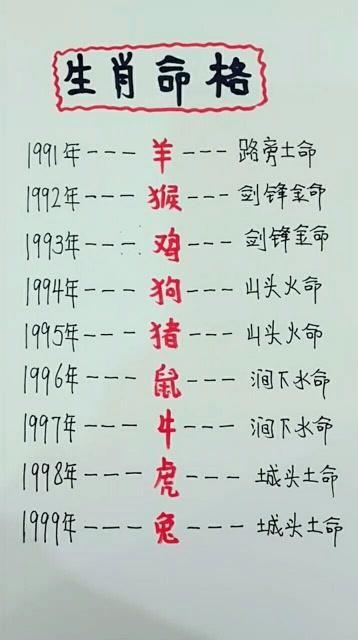 生肖命格
1991年---羊---路旁土命
1992年---猴---剑锋金命
1993年---鸡---剑锋金命
1994年---狗---山头火命
1995年---猪---山头火命
1996年---鼠---涧下水命
1997年---牛---涧下水命
1998年---虎---城头土命
1999年---兔---城头土命